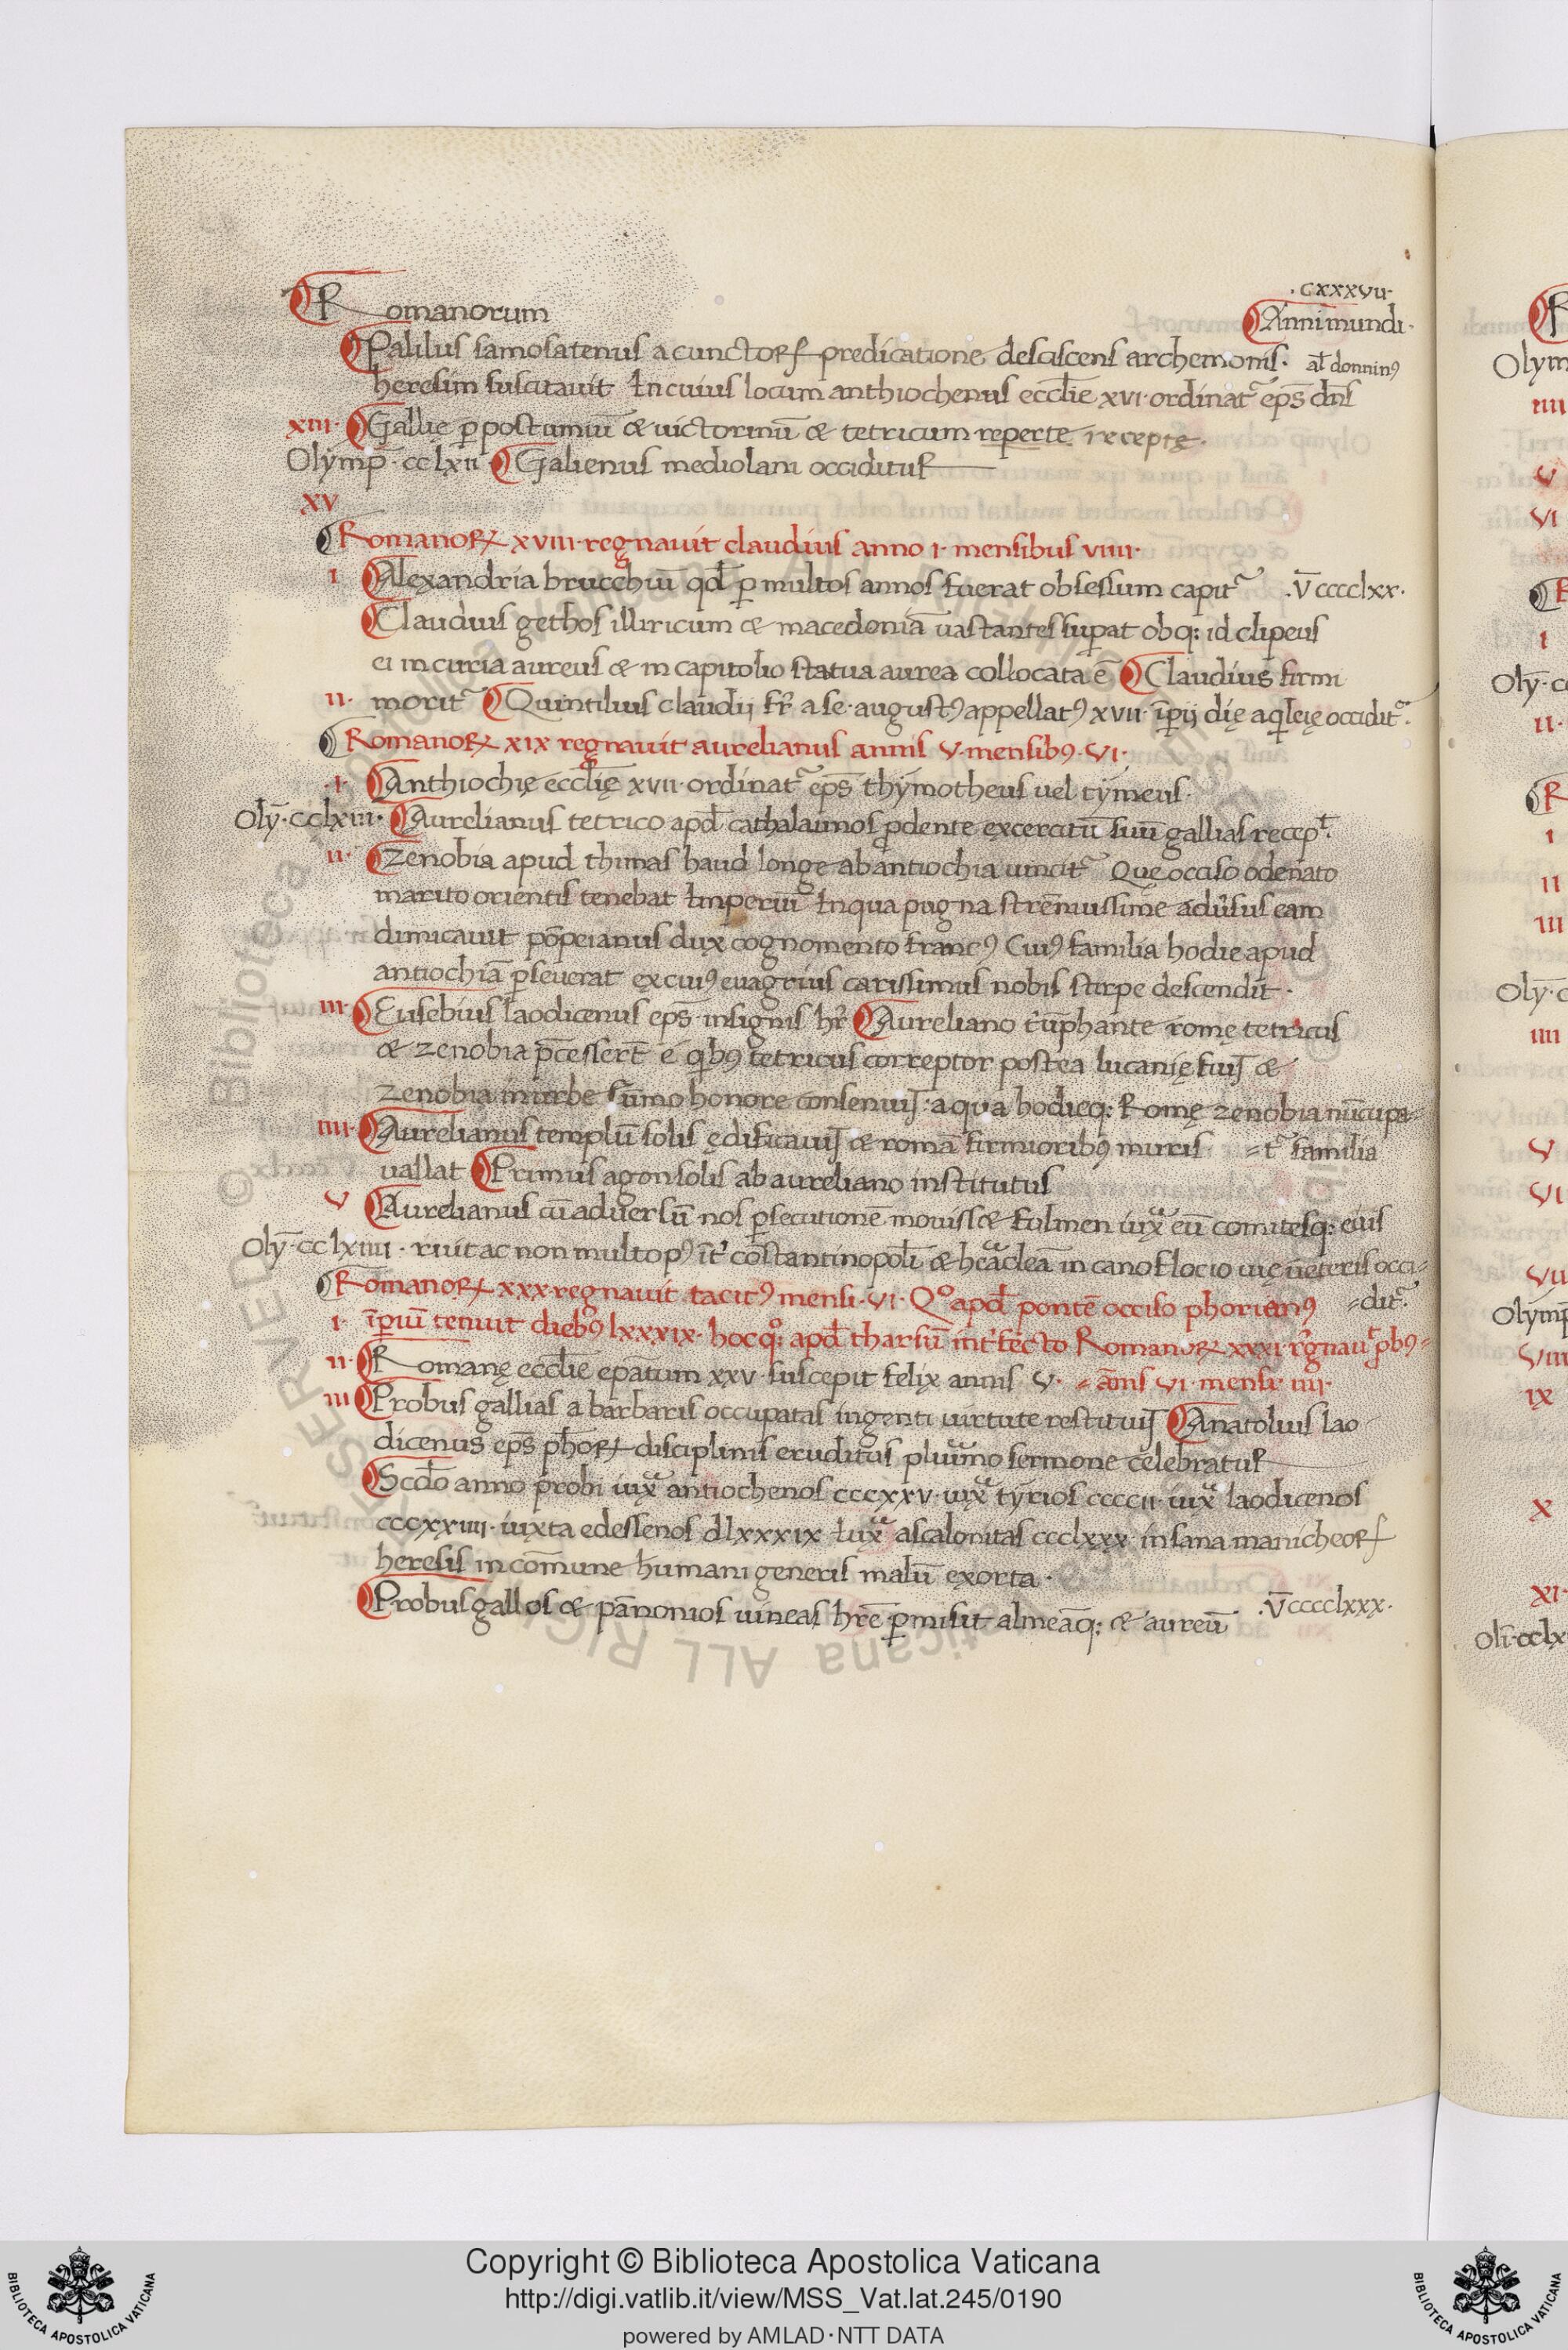 .cxxxvii.
Romanorum
Anni mundi.
Paulus samosatenus a cunctoꝝ predicatione desciscens archemonis. al̄ donninꝰ
heresim suscitauit In cuius locum anthiochenus eccl̄ie xvi. ordinat̄ ep̄s dn̄s
xiii. Gallie ꝑ postumiū & uictorinū & tetricum reperte recepte.
Olymp̄. cclxii Galienus mediolani occiditur
xv
Romanoꝝ xviii. regnauit claudius anno i. mensibus viiii.
i Alexandria brucchiū qd̄ ꝑ multos annos fuerat obsessum capit̄ .V̄ cccclxx.
Claudius gethos illiricum & macedoniā uastantes suꝑat ob q: id clipeus
ei in curia aureus & in capitolio statua aurea collocata ē Claudius firmi
ii. morit̄ Quintilius claudij fr̄ a se. augustꝰ appellatꝰ xvii. īꝑij die aqileie occidit̄.
Romanoꝝ xix regnauit aurelianus annis v. mensibꝰ. vi.
.i. Anthiochię eccl̄ię xvii. ordinat̄ ep̄s thymotheus uel tymeus.
Olȳ. cclxiii. Aurelianus tetrico apd̄ cathalaunos ꝓdente exercitū suū gallias recep̄t.
ii. Zenobia apud thimas haud longe ab antiochia uincit̄ Que occiso odenato
marito orientis tenebat Imperiū In qua pugna strēnuissime adūsus eam
dimicauit pōpeianus dux cognomento francꝰ Cuiꝰ familia hodie apud
antiochiā ꝑseuerat ex cuiꝰ euagrius carissimus nobis stirpe descendit.
iii. Eusebius laodicenus ep̄s insignis hr̄ Aureliano t̄ūphante romę tetricus
& zenobia p̄cessert̄ e qibꝰ tetricus correptor postea lucanię fuit &
zenobia in urbe sūmo honore consenuit: a qua hodieq: Romę zenobia nūcupa=
iiii. Aurelianus templū solis ędificauit & romā firmioribꝰ muris =t̄ familia
uallat Primus agon solis ab aureliano institutus
v Aurelianus cū aduersū nos ꝑsecutionē mouiss& fulmen iux̄ eū comitesq: eius
Olȳ. cclxiiii. ruit ac non multo pꝰ īt̄ cōstantinopol̄i & heacleā in canoflocio uię ueteris occi=
Romanoꝝ xxx. regnauit tacitꝰ mensi. vi. Qo apd̄ pontē occiso phorianꝰ =dit̄.
i. īꝑiū tenuit diebꝰ lxxxix. hocqo: apd̄ tharsū int̄fecto Romanoꝝ xxxi r̄gnau̅ ꝓbꝰ=
ii. Romanę eccl̄ie ep̄atum xxv. suscepit felix annis v. =ānis vi. mensi. iiii.
iii Probus gallias a barbaris occupatas ingenti uirtute restituit Anatolius lao
dicenus ep̄s ph̄oꝝ disciplinis eruditus pluimo sermone celebratur
Scdo anno probi iux̄ antiochenos cccxxv. iux̄ tyrios ccccii. iux̄ laodicenos
cccxxiiii. iuxta edessenos dlxxxix Iux̄ ascalonitas ccclxxx. insana manicheoꝝ
heresis in cōmune humani generis malū exorta.
Probus gallos & pānonios uineas hr̄e ꝑmisit almeāq: & aureū .V̄ cccclxxx.
Copyright © Biblioteca Apostolica Vaticana
http://digi.vatlib.it/view/MSS_Vat.lat.245/0190
powered by AMLAD·NTT DATA